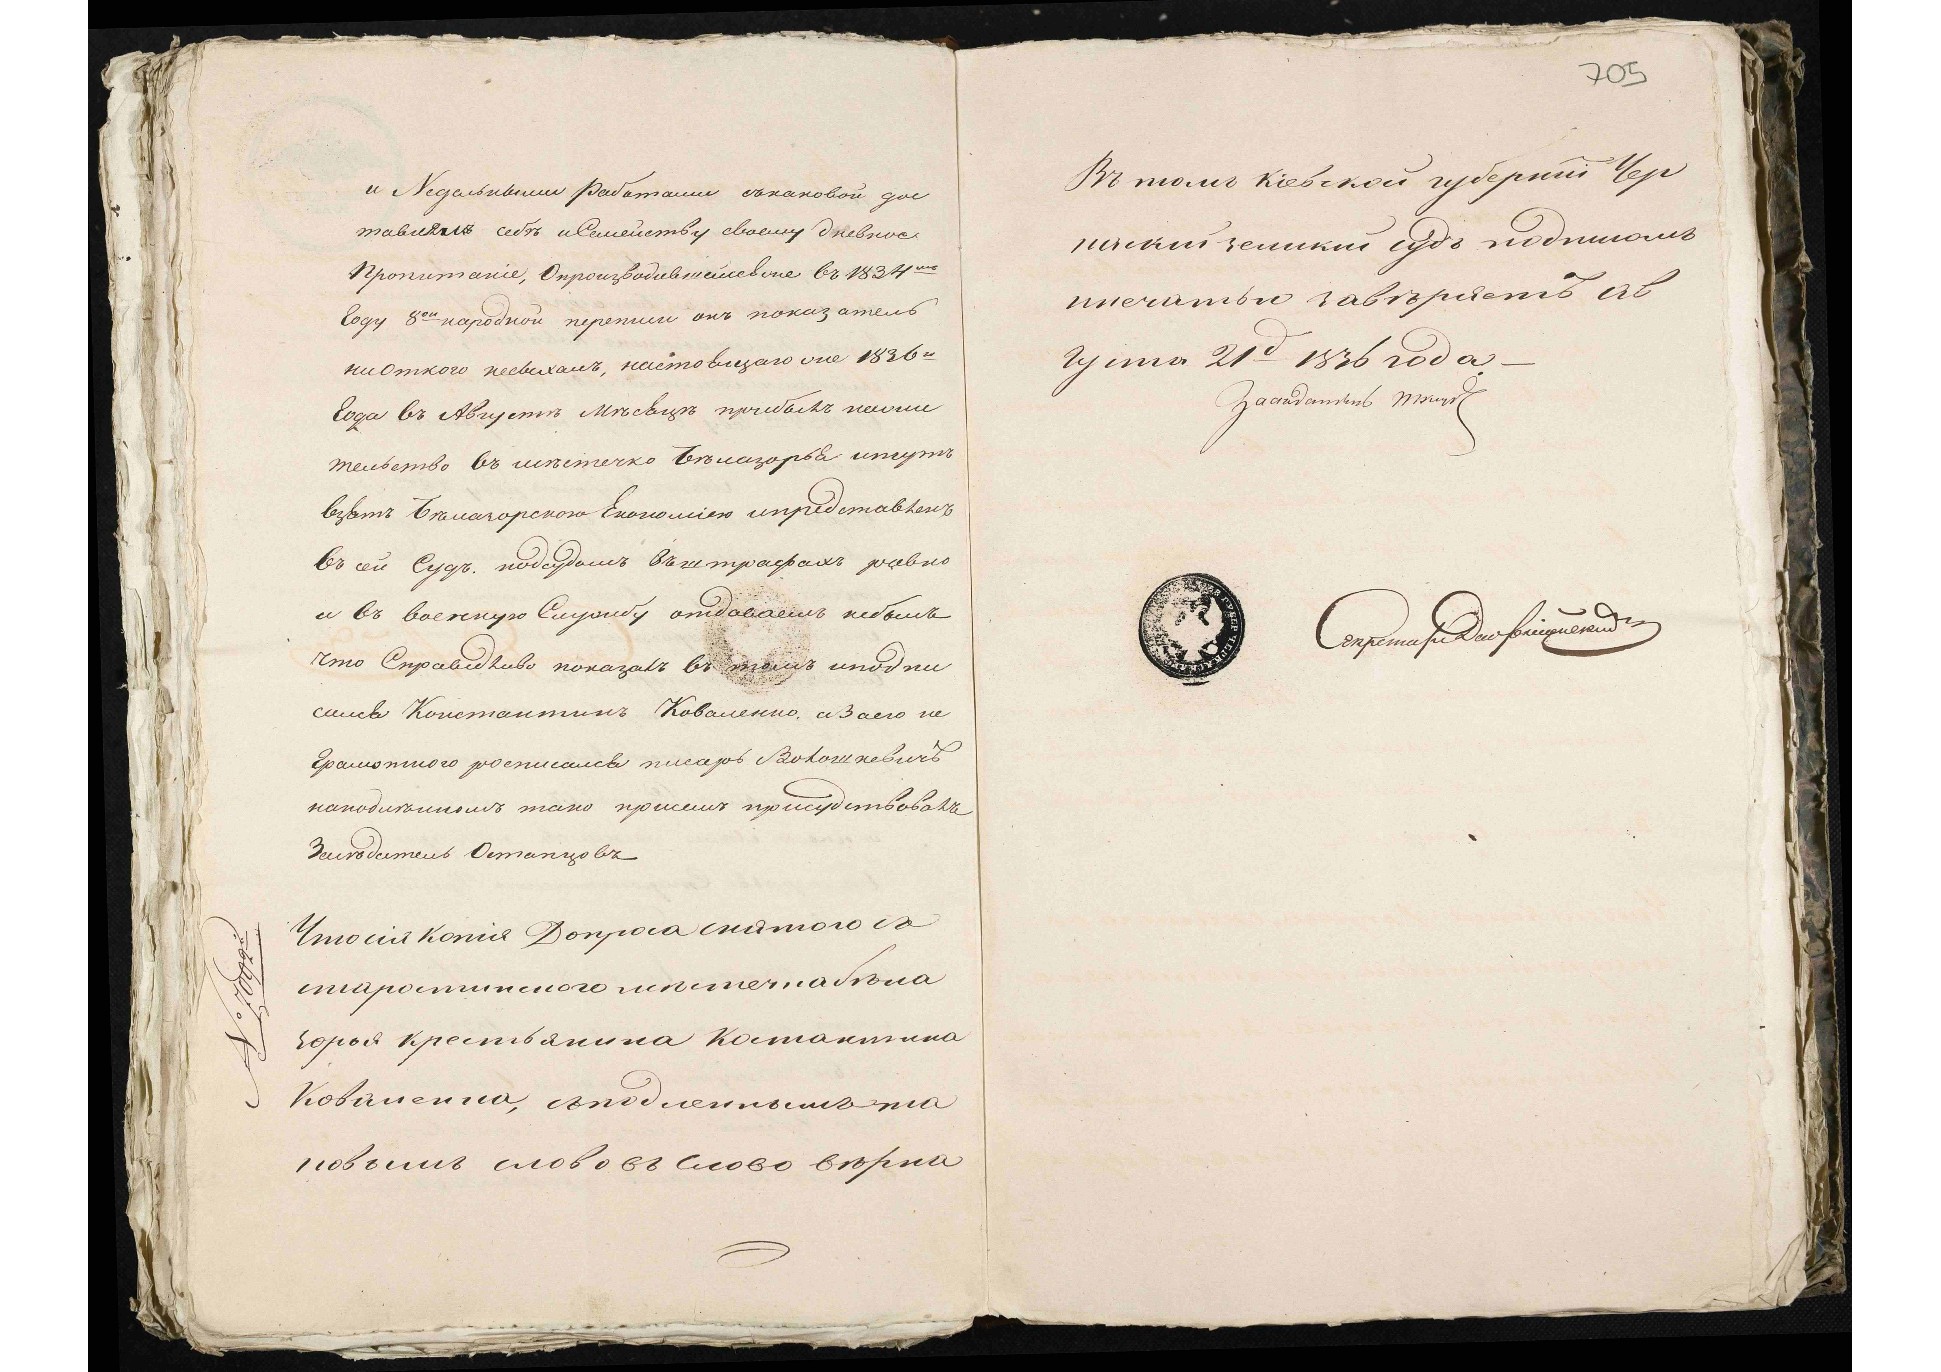 и Недальными Работами снаковой дос
тавлялъ себѣ и Семейству своему дневное
Пропитаніе, Опроизводившейся въ 1834мъ
Году 8ой народной переписи онъ показатель
ни откого неслыхалъ, настоящаго же 1836го
Года въ Августѣ Мѣсяцѣ прибылъ нажи
тельство въ мѣстечко Бѣлазорья итутъ
взятъ Бѣлазорскою Економіею ипредставленъ
въ сей Судъ. подсудомъ въ штрафахъ равно
и въ военную Службу отдаваемъ небылъ
что Справедливо показалъ въ томъ иподпи
сался Константинъ Коваленко, а За его не
Грамотного росписался писарь Волошкевичъ
наподлѣнномъ тако присемъ присудствовалъ
Засѣдатель Остапцовъ
Что сія Копія Допроса снятого съ
старостинского мѣстечка бѣла
зорья крестьянина Костантина
Коваленка, съподленнымъ та
ковымъ слово въ слово вѣрна
№ 7002й
705
Въ томъ Кіевской губерніи Чер
каскій земскій судъ подписомъ
ипечатью завѣряетъ Ав
густа 21д 1836 года
Засѣдатель
Секретарь